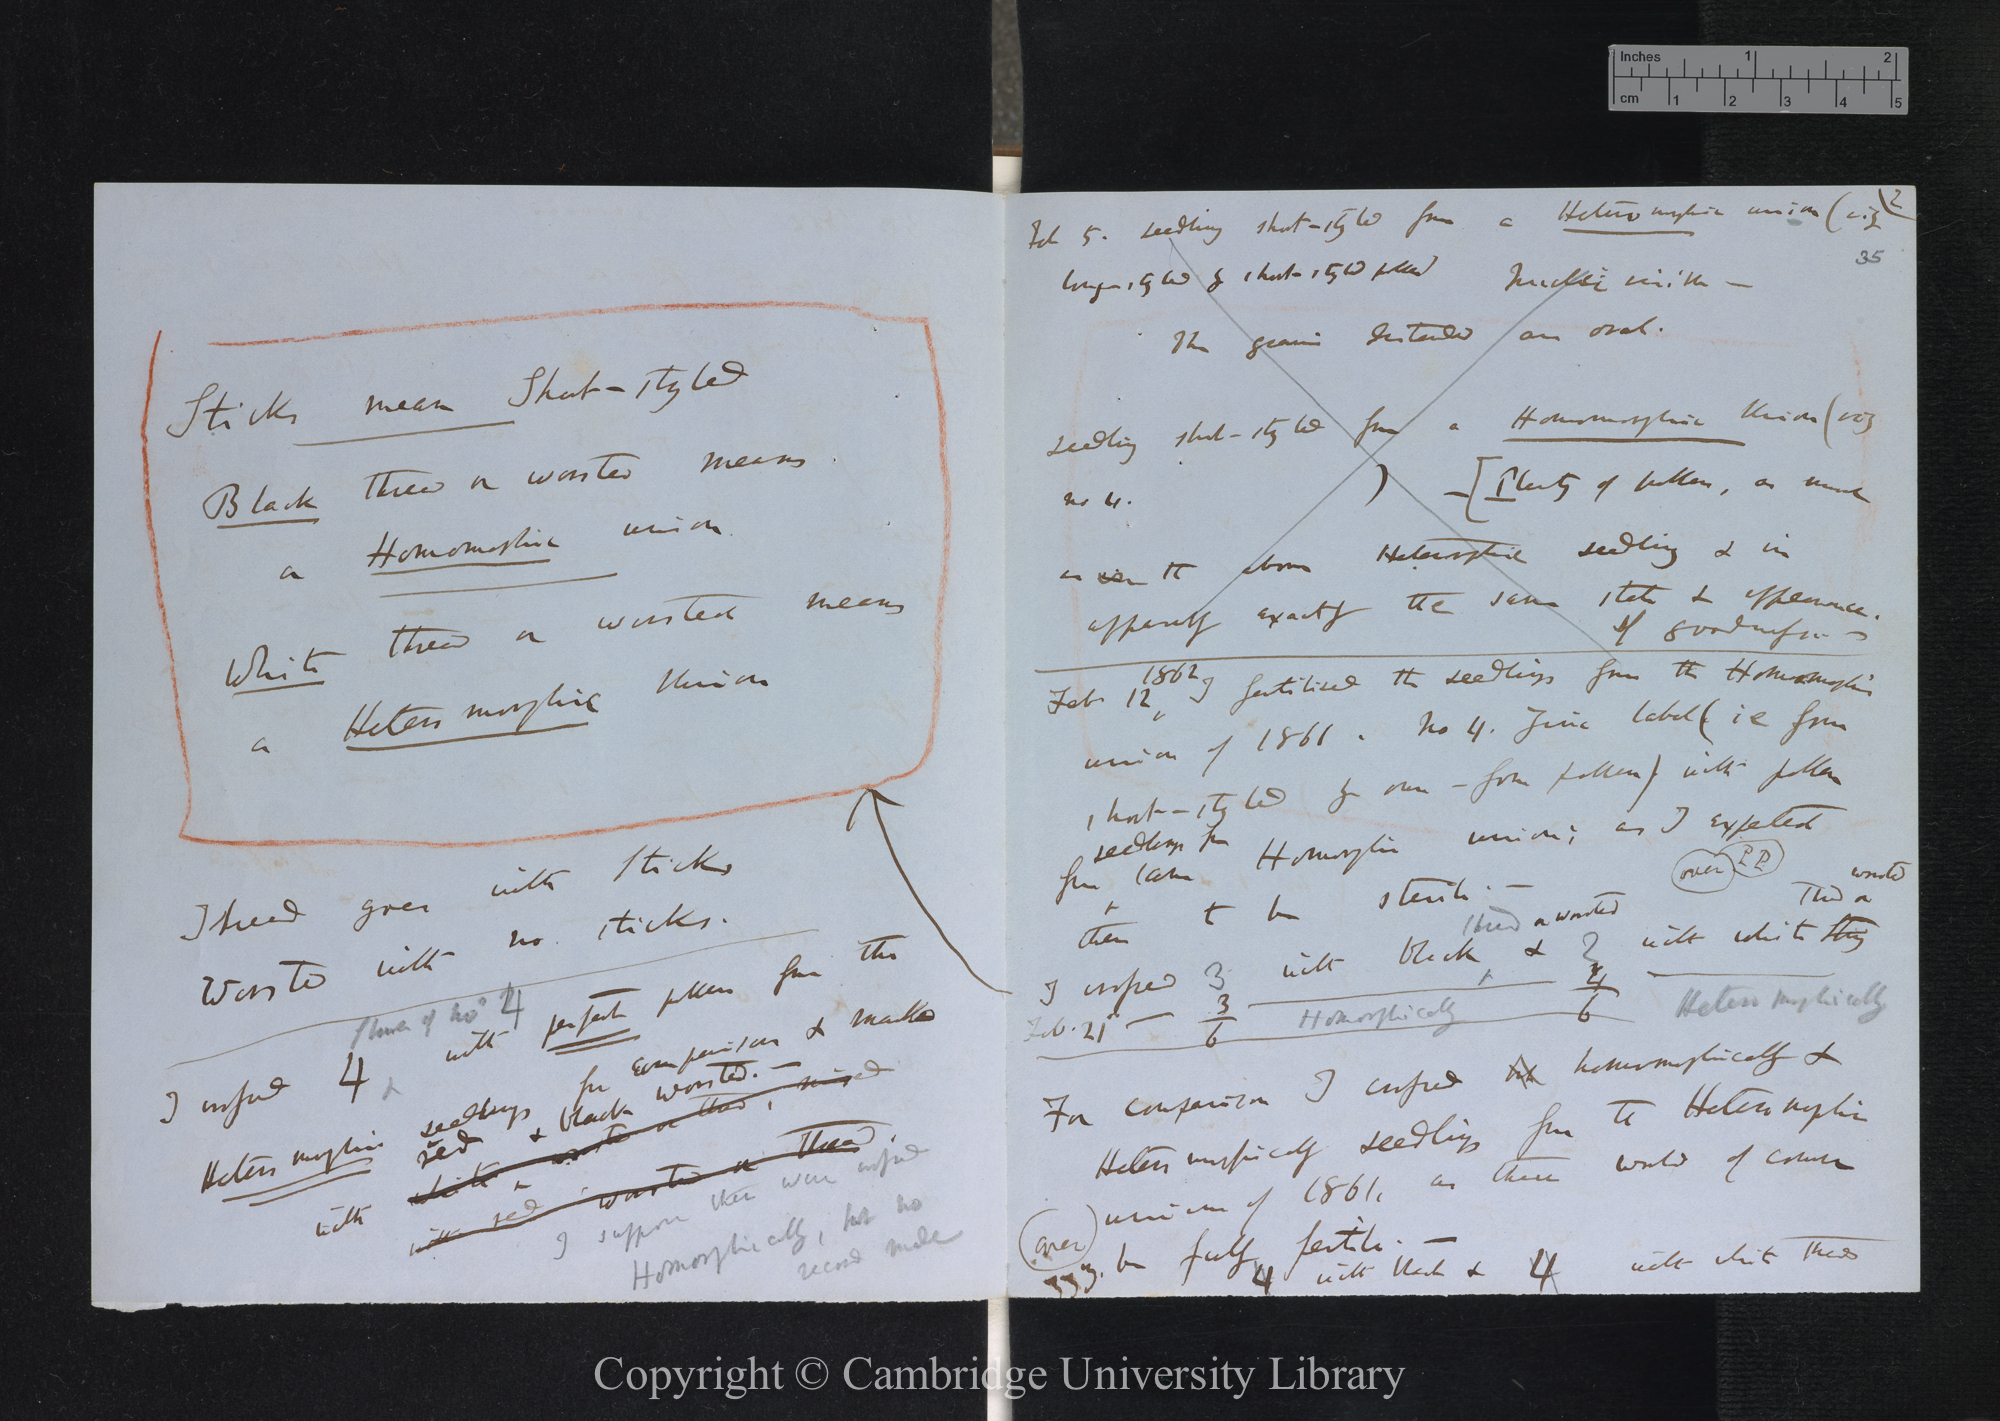 Sticks mean Short-styled
Black thread or worsted means
a Homomorphic union
White thread or worsted means
a Heteromorphic Union
Thread goes with Sticks
Worsted with no sticks.
flower of no 4
I crossed 4 with perfect pollen from the
Heteromorphic seedlings for comparison & marked
with red & black worsted.
white worsted or thread, mixed
with red worsted or thread.
I suppose these were crossed
Homomorphically, but no
record made
2
35
Feb 5. seedling short-styled from a Heteromorphic union (viz
long-styled by short-styled pollen)
The grains distended are oval.
seedling short-styled from a Homomorphic Union (viz
no 4. ) — [Plenty of pollen, as much
as in the above Heteromorphic seedling & in
apparently exactly the same state & appearance.
of goodness —
1862
Feb. 12, I fertilised the seedlings from the Homomorphic
union of 1861. No 4. Zinc label (ie from
short-styled by own-form pollen) with pollen
seedlings from
from same Homomorphic union; as I expected
over
them to be sterile. —
thread or worsted
worsted
Thread or
I crossed 3 with black & 2 with white
Feb. 21 — 3 4
6 Homomorphically 6 Heteromorphically
For comparison I crossed homomorphically &
Heteromorphically seedlings from the Heteromorphic
unions of 1861, as these would of course
(over)
be fully fertile. —
4 with black & 4 with white thread
Inches 1 2
cm 1 2 3 4 5
Copyright © Cambridge University Library